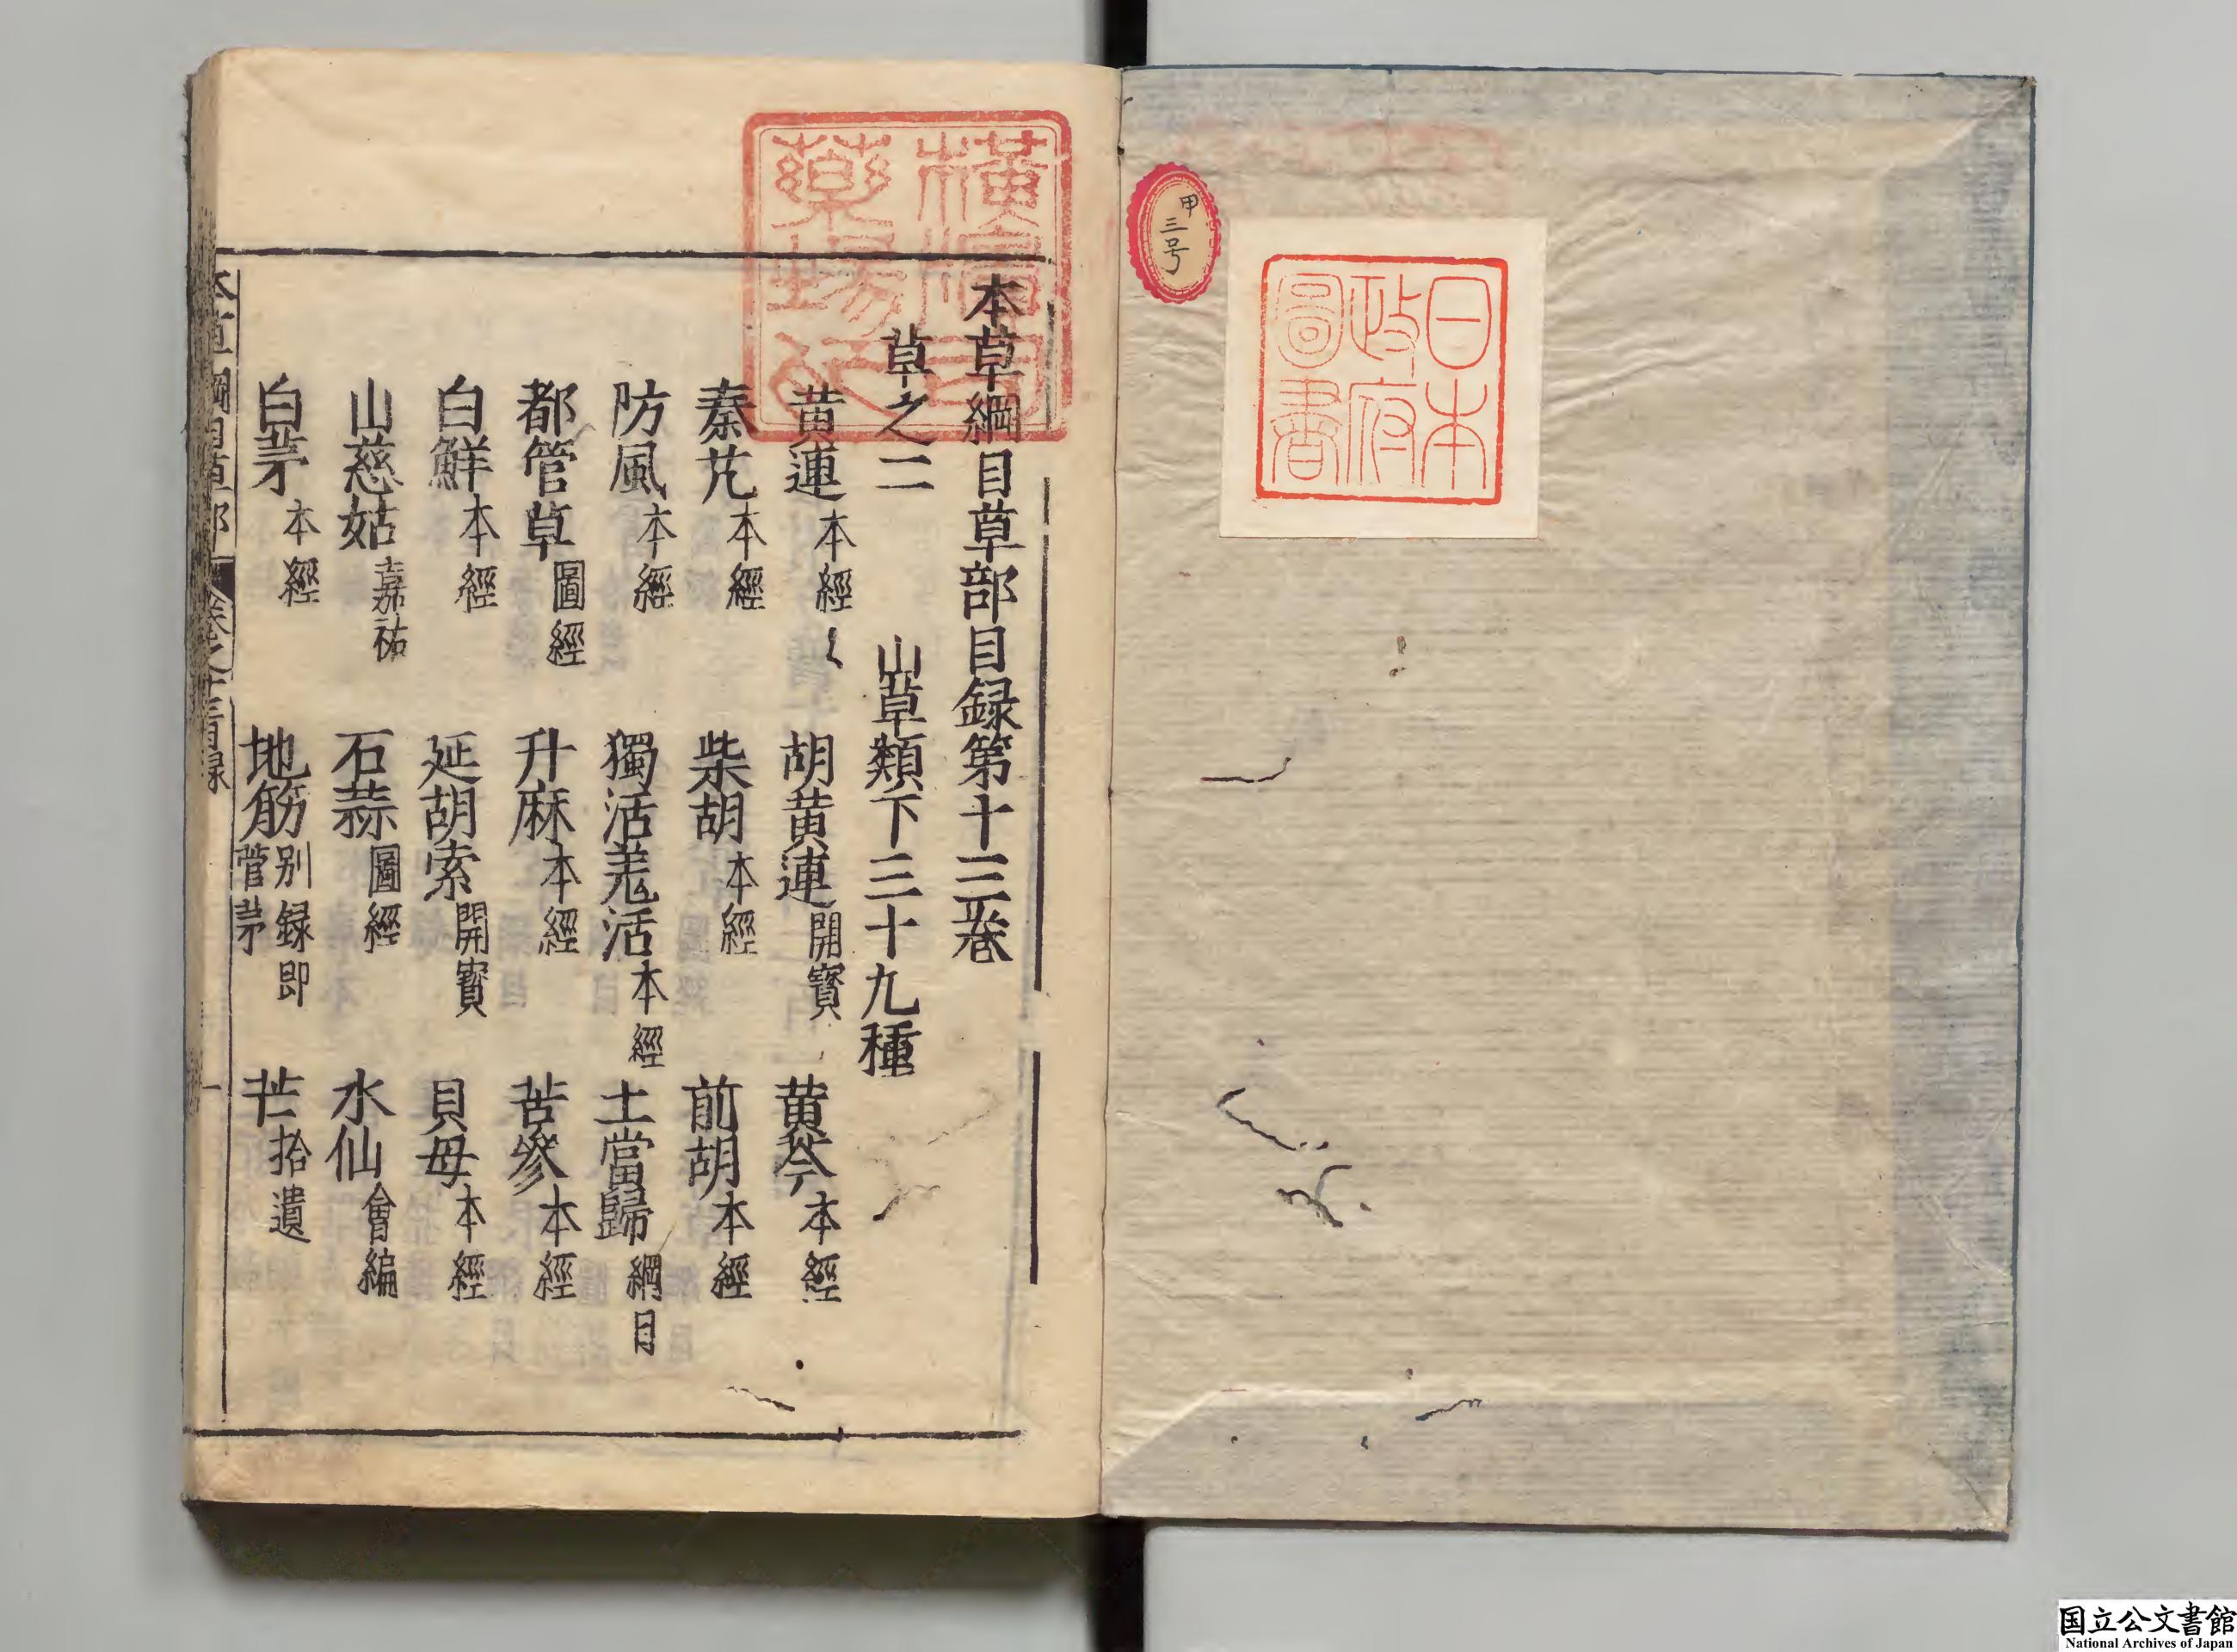 甲
三号
日本
政府
圖書
本草綱目草部目録第十三卷
草之二 山草類下三十九種
黄連本經 胡黄連開寳 黄芩本經
秦艽本經 柴胡本經 前胡本經
防風本經 獨活羌活本經 土當歸綱目
都管草圖經 升麻本經 苦參本經
白鮮本經 延胡索開寳 貝母本經
山慈姑嘉祐 石蒜圖經 水仙會編
白茅本經 地筋别録即菅茅 芒拾遺
本草綱目草部 卷之十三目録 一
国立公文書館
National Archives of Japan